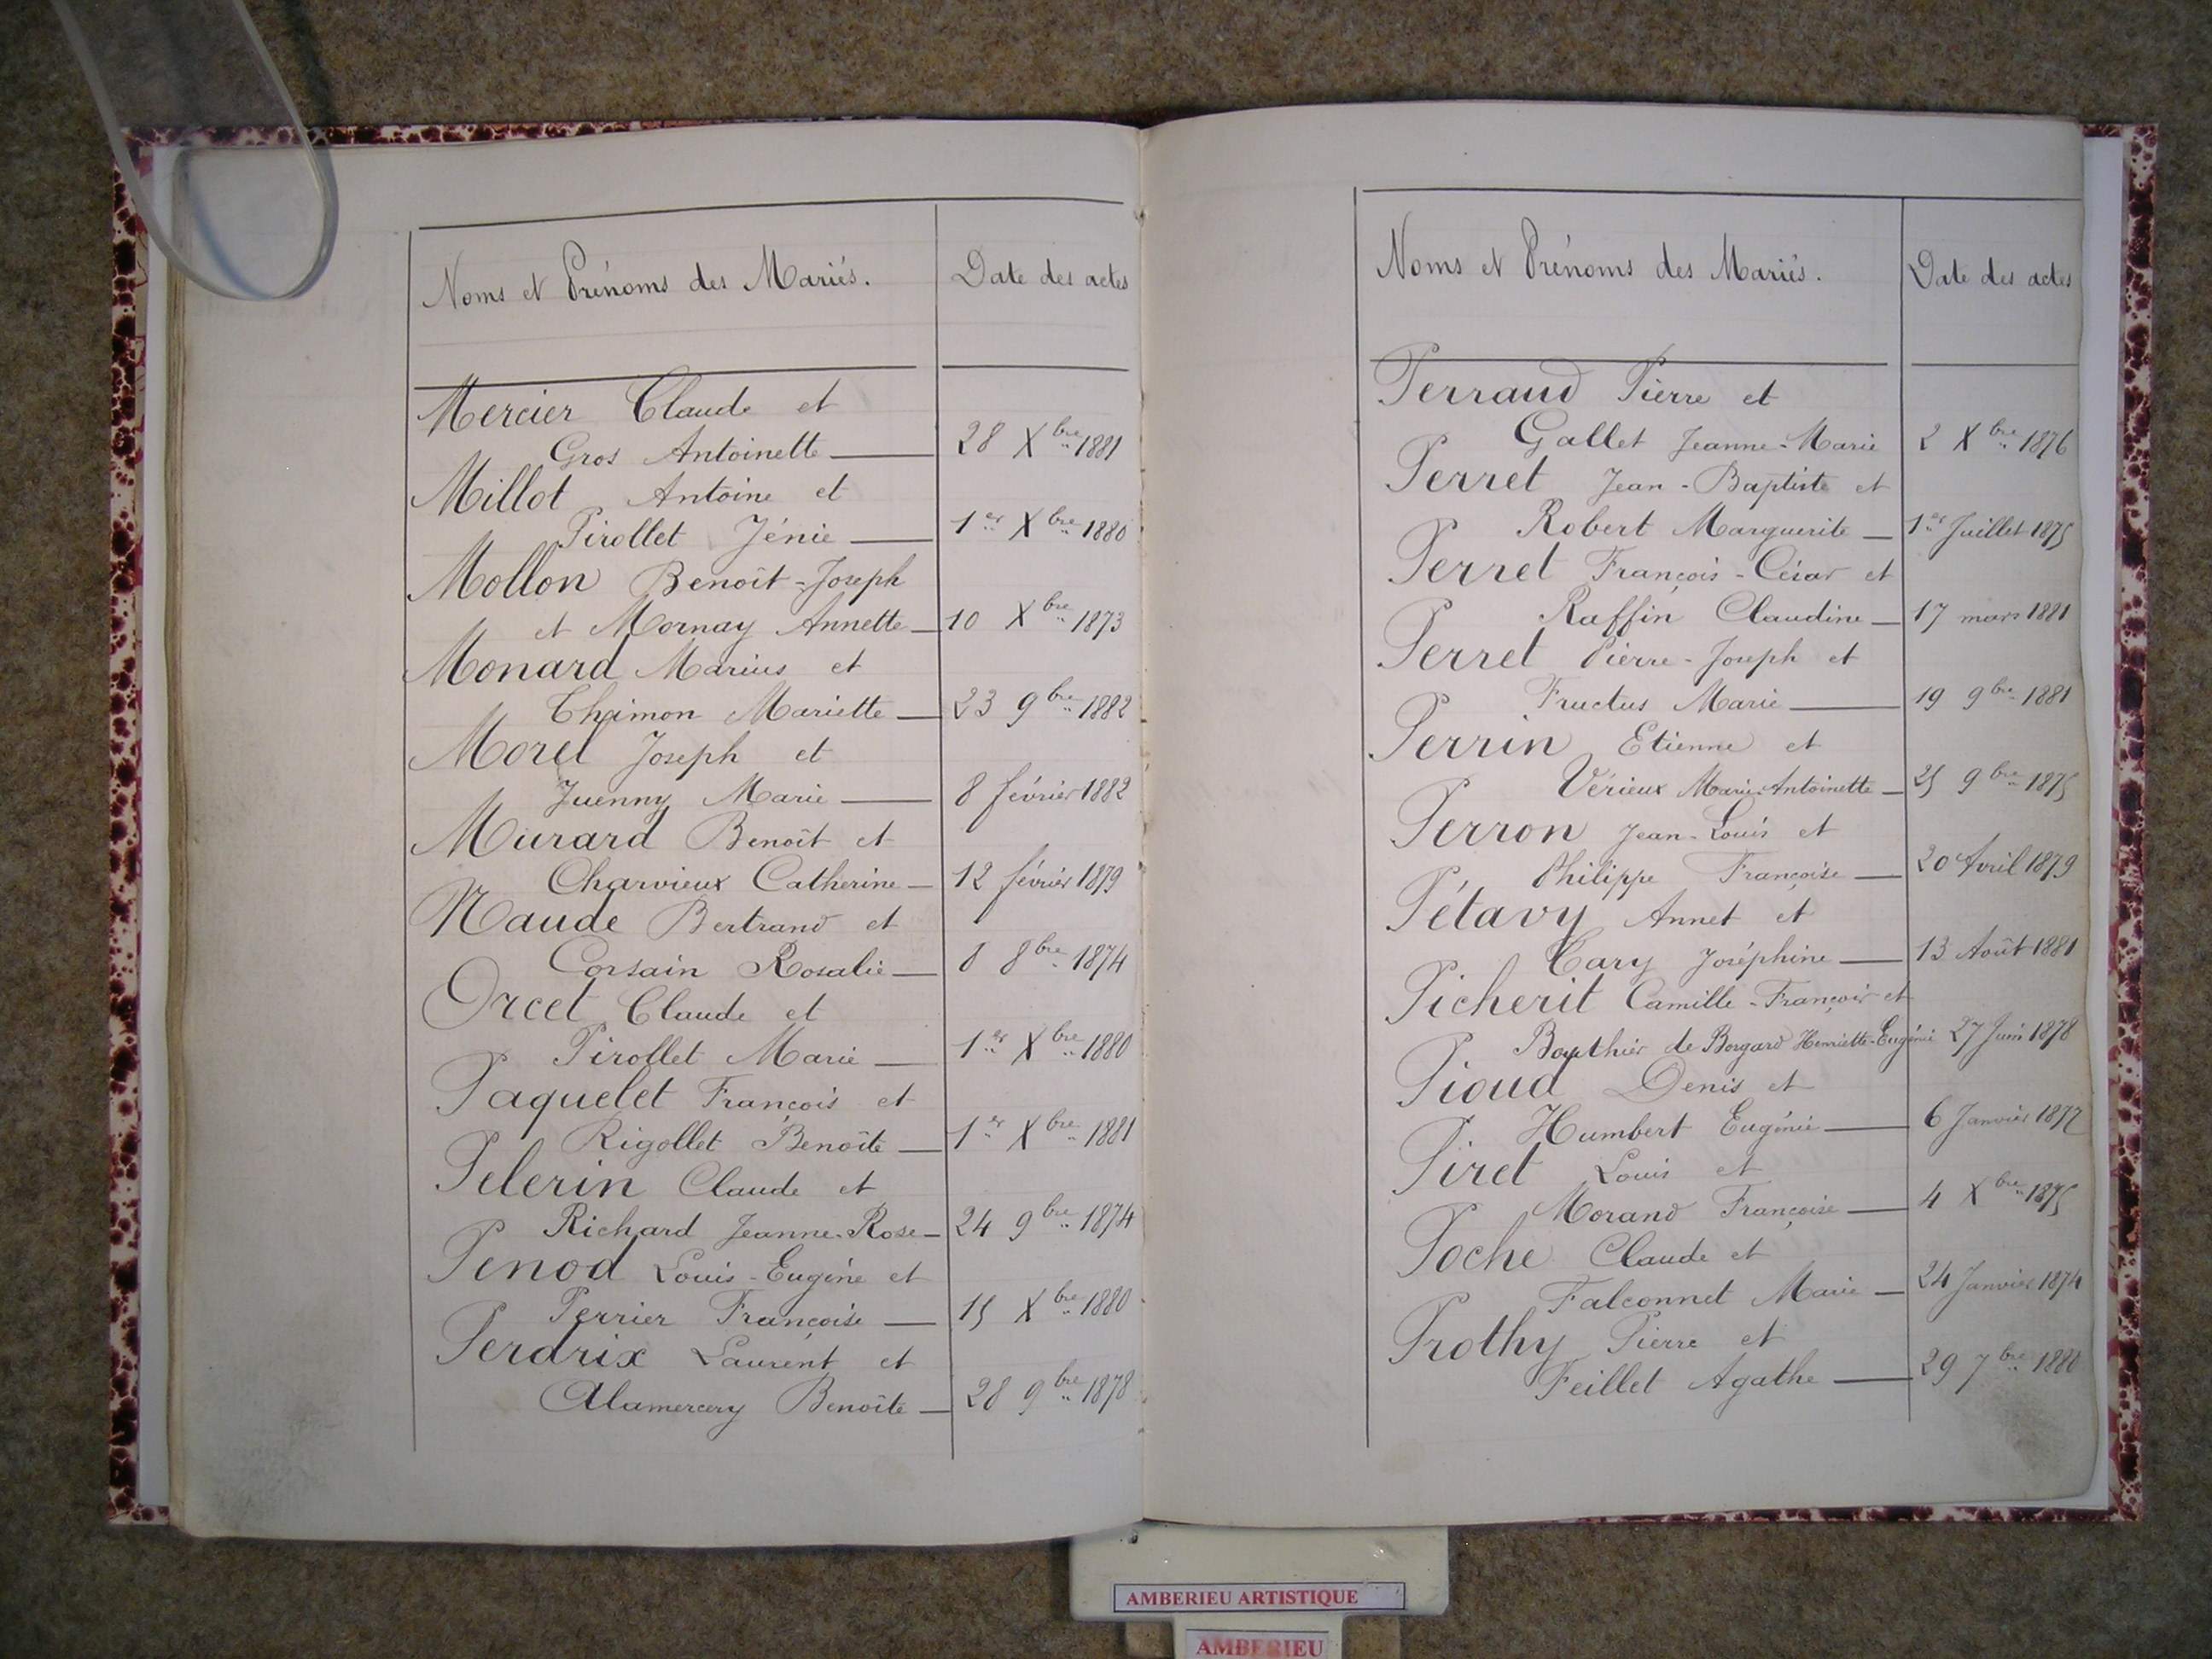 Noms et Prénoms des Mariés. Date des actes
Mercier Claude et
Gros Antoinette — 28 Xbre 1881
Millot Antoine et
Pirollet Jénie — 1er Xbre 1880
Mollon Benoît-Joseph
et Mornay Annette — 10 Xbre 1873
Monard Marius et
Thaimon Mariette — 23 9bre 1882
Morel Joseph et
Juenny Marie — 8 février 1882
Murard Benoît et
Charvieux Catherine — 12 février 1879
Naude Bertrand et
Corsain Rosalie — 8 8bre 1874
Orcet Claude et
Pirollet Marie — 1er Xbre 1880
Paquelet François et
Rigollet Benoîte — 1er Xbre 1881
Pelerin Claude et
Richard Jeanne-Rose — 24 9bre 1874
Penod Louis-Eugène et
Perrier Françoise — 15 Xbre 1880
Perdrix Laurent et
Alamercery Benoîte — 28 9bre 1878
Noms et Prénoms des Mariés. Date des actes
Perraud Pierre et
Gallet Jeanne-Marie 2 Xbre 1876
Perret Jean-Baptiste et
Robert Marguerite — 1er Juillet 1875
Perret François-César et
Raffin Claudine — 17 mars 1881
Perret Pierre-Joseph et
Fructus Marie — 19 9bre 1881
Perrin Etienne et
Vérieux Marie-Antoinette — 25 9bre 1875
Perron Jean-Louis et
Philippe Françoise — 20 Avril 1879
Pétavy Annet et
Cary Joséphine — 13 Août 1881
Picherit Camille-François et
Bouthier de Borgard Henriette-Eugénie 27 Juin 1878
Pioud Denis et
Humbert Eugénie — 6 Janvier 1877
Piret Louis et
Morand Françoise — 4 Xbre 1875
Poche Claude et
Falconnet Marie — 24 Janvier 1874
Prothy Pierre et
Feillet Agathe — 29 7bre 1880
AMBERIEU ARTISTIQUE
AMBERIEU